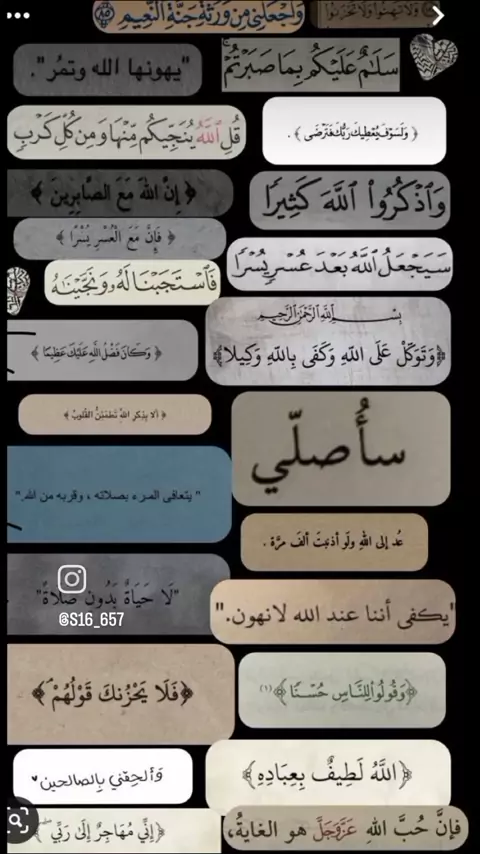 وَاجْعَلْنِي مِنْ وَرَثَةِ جَنَّةِ النَّعِيمِ ﴿٨٥﴾
وَلَا تَهِنُوا وَلَا تَحْزَنُوا
سَلَامٌ عَلَيْكُم بِمَا صَبَرْتُمْ
"يهونها الله وتمُر".
﴿ وَلَسَوْفَ يُعْطِيكَ رَبُّكَ فَتَرْضَى ﴾ .
قُلِ اللَّهُ يُنَجِّيكُم مِّنْهَا وَمِن كُلِّ كَرْبٍ
وَاذْكُرُوا اللَّهَ كَثِيرًا
﴿ إِنَّ اللهَ مَعَ الصَّابِرِينَ ﴾
﴿ فَإِنَّ مَعَ الْعُسْرِ يُسْرًا ﴾
سَيَجْعَلُ اللَّهُ بَعْدَ عُسْرٍ يُسْرًا
فَاسْتَجَبْنَا لَهُ وَنَجَّيْنَاهُ
بِسْمِ اللَّهِ الرَّحْمَنِ الرَّحِيمِ
﴿وَتَوَكَّلْ عَلَى اللَّهِ وَكَفَى بِاللَّهِ وَكِيلًا﴾
﴿ وَكَانَ فَضْلُ اللَّهِ عَلَيْكَ عَظِيمًا ﴾
﴿ أَلَا بِذِكْرِ اللَّهِ تَطْمَئِنُّ الْقُلُوبُ ﴾
سأُصلّي
" يتعافى المرء بصلاته ، وقربه من الله."
عُد إلى اللهِ ولَو أذنبتَ ألفَ مرَّة .
"لَا حَيَاةٌ بَدُونِ صَلَاةً"
@S16_657
"يكفى أننا عند الله لانهون."
﴿فَلَا يَحْزُنكَ قَوْلُهُمْ﴾
﴿وَقُولُوا لِلنَّاسِ حُسْنًا﴾(١)
﴿اللَّهُ لَطِيفٌ بِعِبَادِهِ﴾
وَألحِقني بِالصالحين
﴿إِنِّي مُهَاجِرٌ إِلَىٰ رَبِّي﴾
فإنَّ حُبَّ اللهِ عَزَّوَجَلَّ هو الغاية،